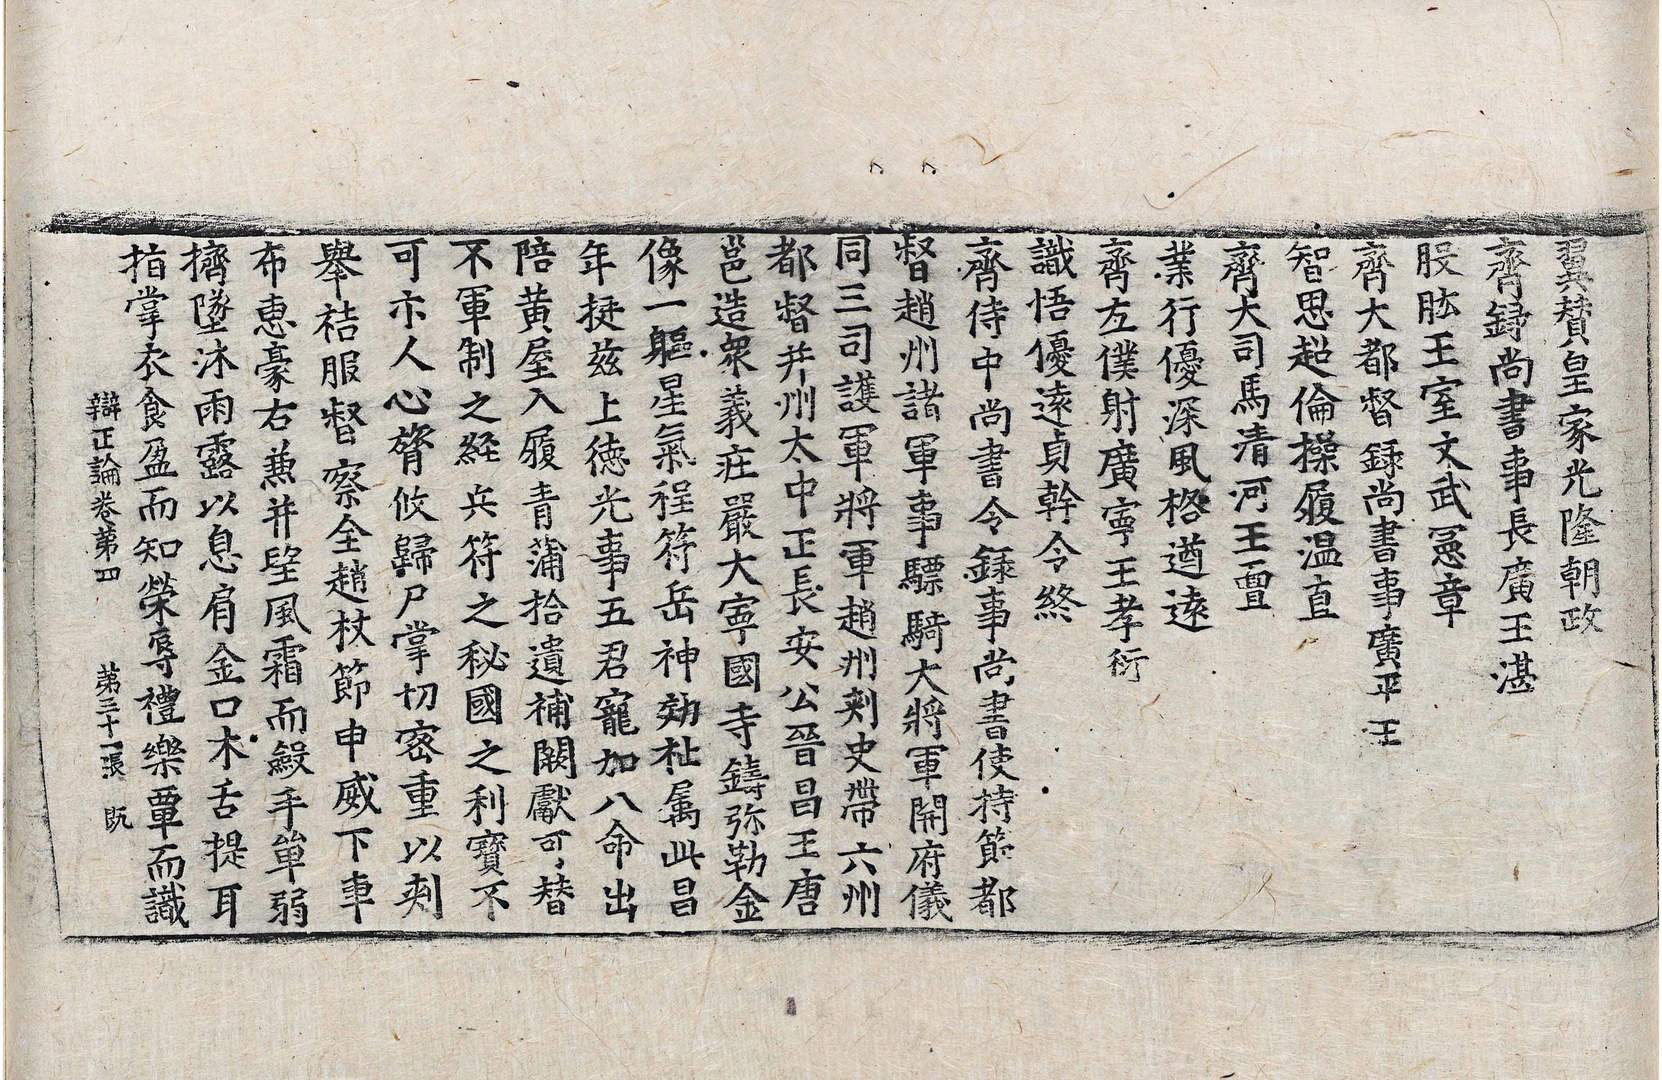 翼賛皇家光隆朝政
齊録尚書事長廣王湛
股肱王室文武冕章
齊大都督録尚書事廣平王
智思超倫操履温直
齊大司馬清河王亶
業行優深風格遒遠
齊左僕射廣寜王孝衍
識悟優遠貞幹令終
齊侍中尚書令録事尚書使持節都
督趙州諸軍事驃騎大將軍開府儀
同三司護軍將軍趙州刾史帶六州
都督并州太中正長安公晉昌王唐
邕造衆義荘嚴大寧國寺鑄弥勒金
像一軀星氣程符岳神効祉属此昌
年挺兹上徳光事五君寵加八命出
陪黄屋入履青蒲拾遺補闕獻可替
不軍制之経兵符之秘國之利寶不
可示人心膂攸歸尸掌切密重以刾
舉祮服督察全趙杖節申威下車
布恵豪右兼并望風霜而縠手單弱
擠墜沐雨露以息肩金口木舌提耳
指掌衣食盈而知榮辱禮樂覃而識
辯正論卷第四 第三十一張 既